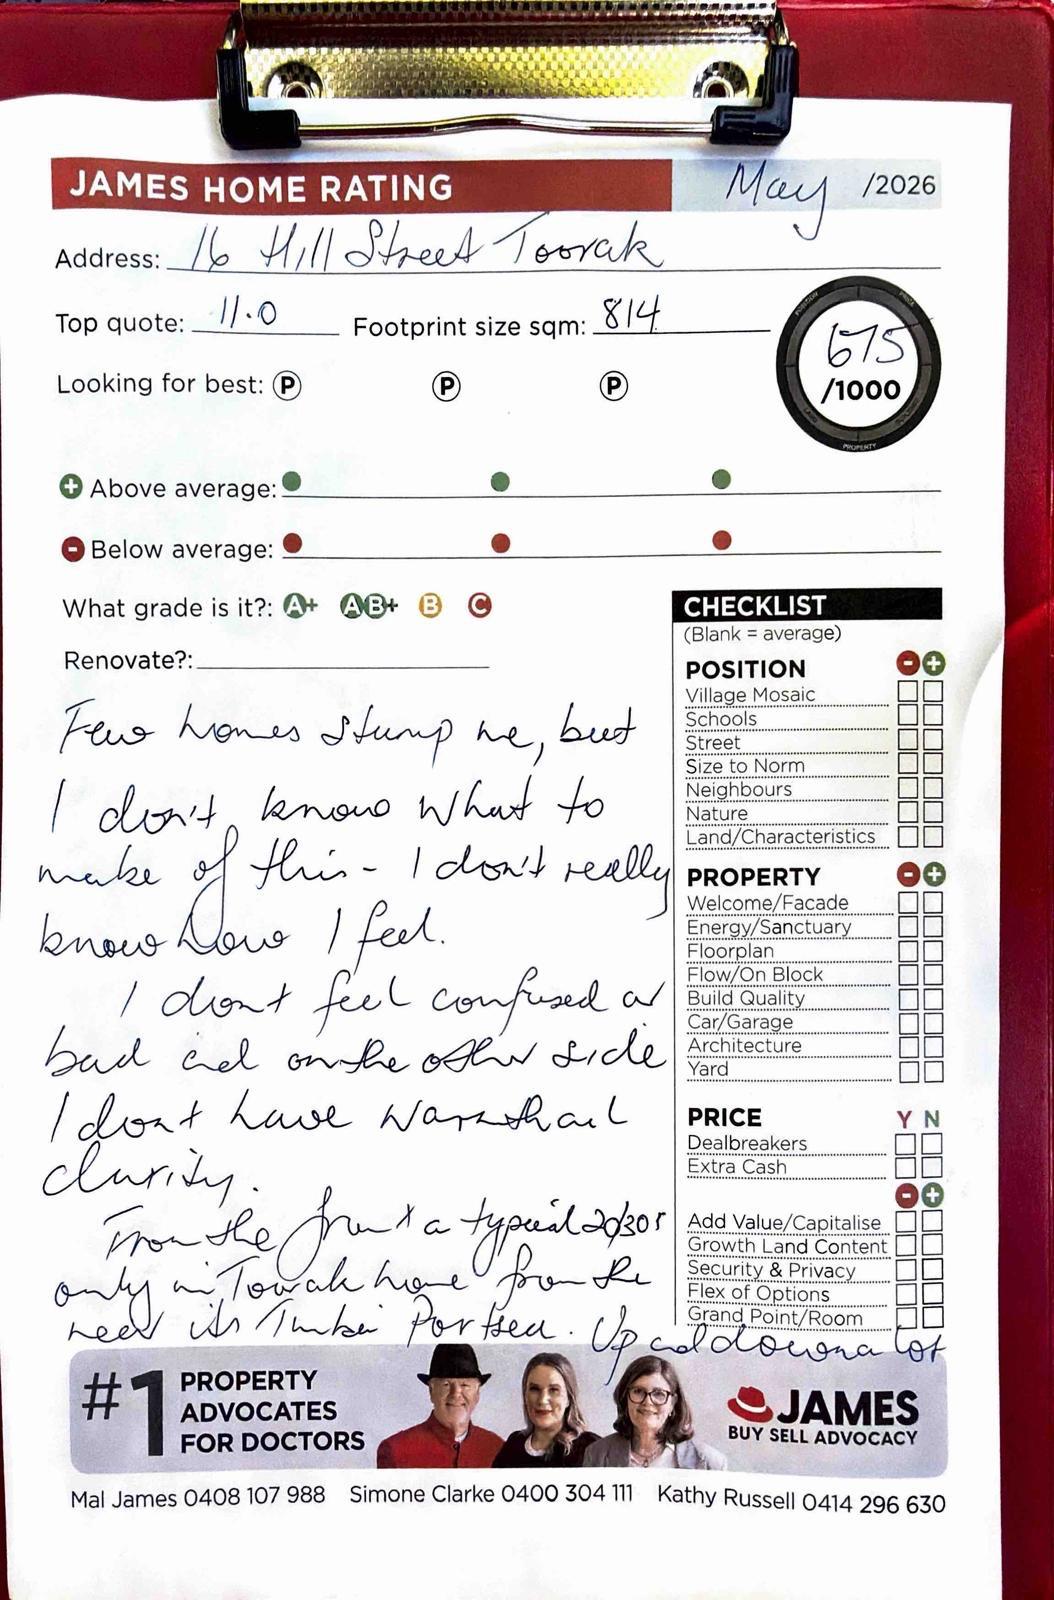 JAMES HOME RATING
May /2026
Address: 16 Hill Street Toorak
Top quote: 11.0 Footprint size sqm: 814
675
/1000
Looking for best: P P P
PROPERTY
+ Above average:
- Below average:
What grade is it?: A+ AB+ B C
Renovate?:
Few homes stump me, but
I don't know what to
make of this - I don't really
know how I feel.
I dont feel confused or
bad and on the other side
I dont have
clarity.
From the front a typical 20/30s
only in Toorak home from the
its Timber Portsea. Up and down a lot
CHECKLIST
(Blank = average)
POSITION - +
Village Mosaic
Schools
Street
Size to Norm
Neighbours
Nature
Land/Characteristics
PROPERTY - +
Welcome/Facade
Energy/Sanctuary
Floorplan
Flow/On Block
Build Quality
Car/Garage
Architecture
Yard
PRICE Y N
Dealbreakers
Extra Cash
- +
Add Value/Capitalise
Growth Land Content
Security & Privacy
Flex of Options
Grand Point/Room
#1 PROPERTY
ADVOCATES
FOR DOCTORS
JAMES
BUY SELL ADVOCACY
Mal James 0408 107 988 Simone Clarke 0400 304 111 Kathy Russell 0414 296 630